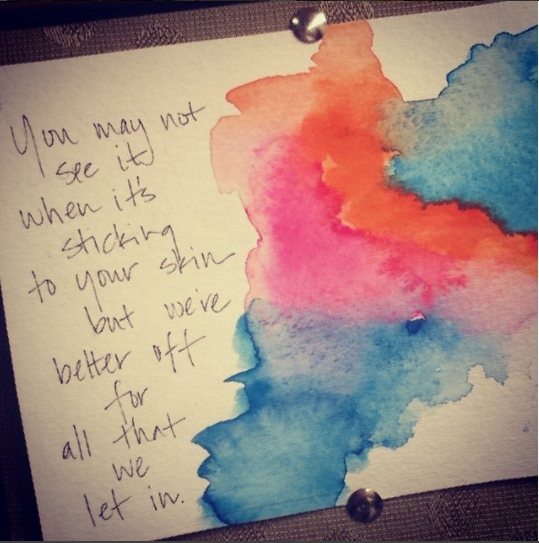 You may not
see it
when it's
sticking
to your skin
but we're
better off
for
all that
we
let in.